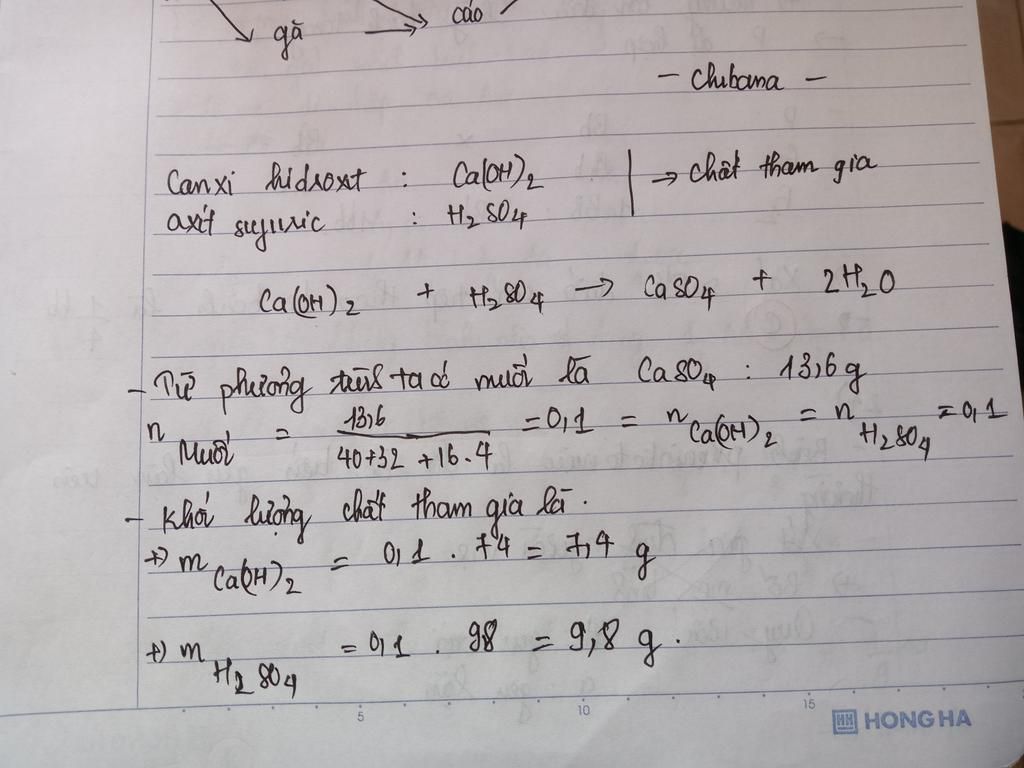 gà → cáo
- Chibana -
Canxi hidroxit : Ca(OH)2 | → chất tham gia
axít sunfuric : H2SO4
Ca(OH)2 + H2SO4 → CaSO4 + 2H2O
- Từ phương trình ta có muối là CaSO4 : 13,6 g
n Muối = 13,6 / 40+32+16.4 = 0,1 = n Ca(OH)2 = n H2SO4 = 0,1
- Khối lượng chất tham gia là.
+) m Ca(OH)2 = 0,1 . 74 = 7,4 g
+) m H2SO4 = 0,1 . 98 = 9,8 g.
5 10 15
HH HONG HA